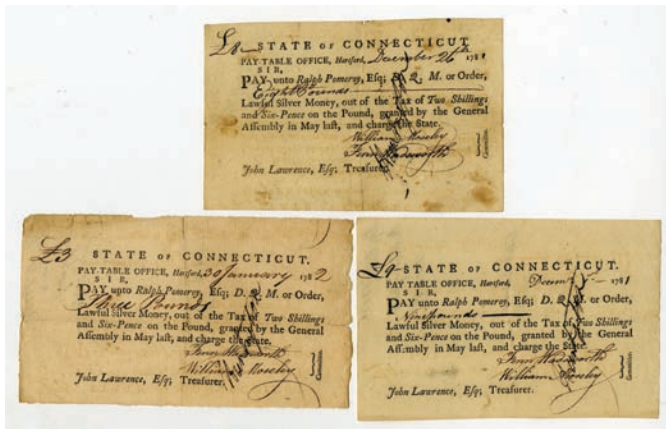 £8 STATE OF CONNECTICUT.
PAY-TABLE OFFICE, Hartford, December 26th 1781
SIR,
PAY unto Ralph Pomeroy, Esq; D. Q. M. or Order,
Eight Pounds
Lawful Silver Money, out of the Tax of Two Shillings
and Six-Pence on the Pound, granted by the General
Assembly in May last, and charge the State.
William Moseley
Fenn Wadsworth
Committee.
John Lawrence, Esq; Treasurer.
£3 STATE OF CONNECTICUT.
PAY-TABLE OFFICE, Hartford, 30 January 1782
SIR,
PAY unto Ralph Pomeroy, Esq; D. Q. M. or Order,
Three Pounds
Lawful Silver Money, out of the Tax of Two Shillings
and Six-Pence on the Pound, granted by the General
Assembly in May last, and charge the State.
Fenn Wadsworth
William Moseley
Committee.
John Lawrence, Esq; Treasurer.
£9 STATE OF CONNECTICUT.
PAY TABLE OFFICE, Hartford, 1781
SIR,
PAY unto Ralph Pomeroy, Esq; D. Q. M. or Order,
Nine Pounds
Lawful Silver Money, out of the Tax of Two Shillings
and Six-Pence on the Pound, granted by the General
Assembly in May last, and charge the State.
Fenn Wadsworth
William Moseley
Committee.
John Lawrence, Esq; Treasurer.